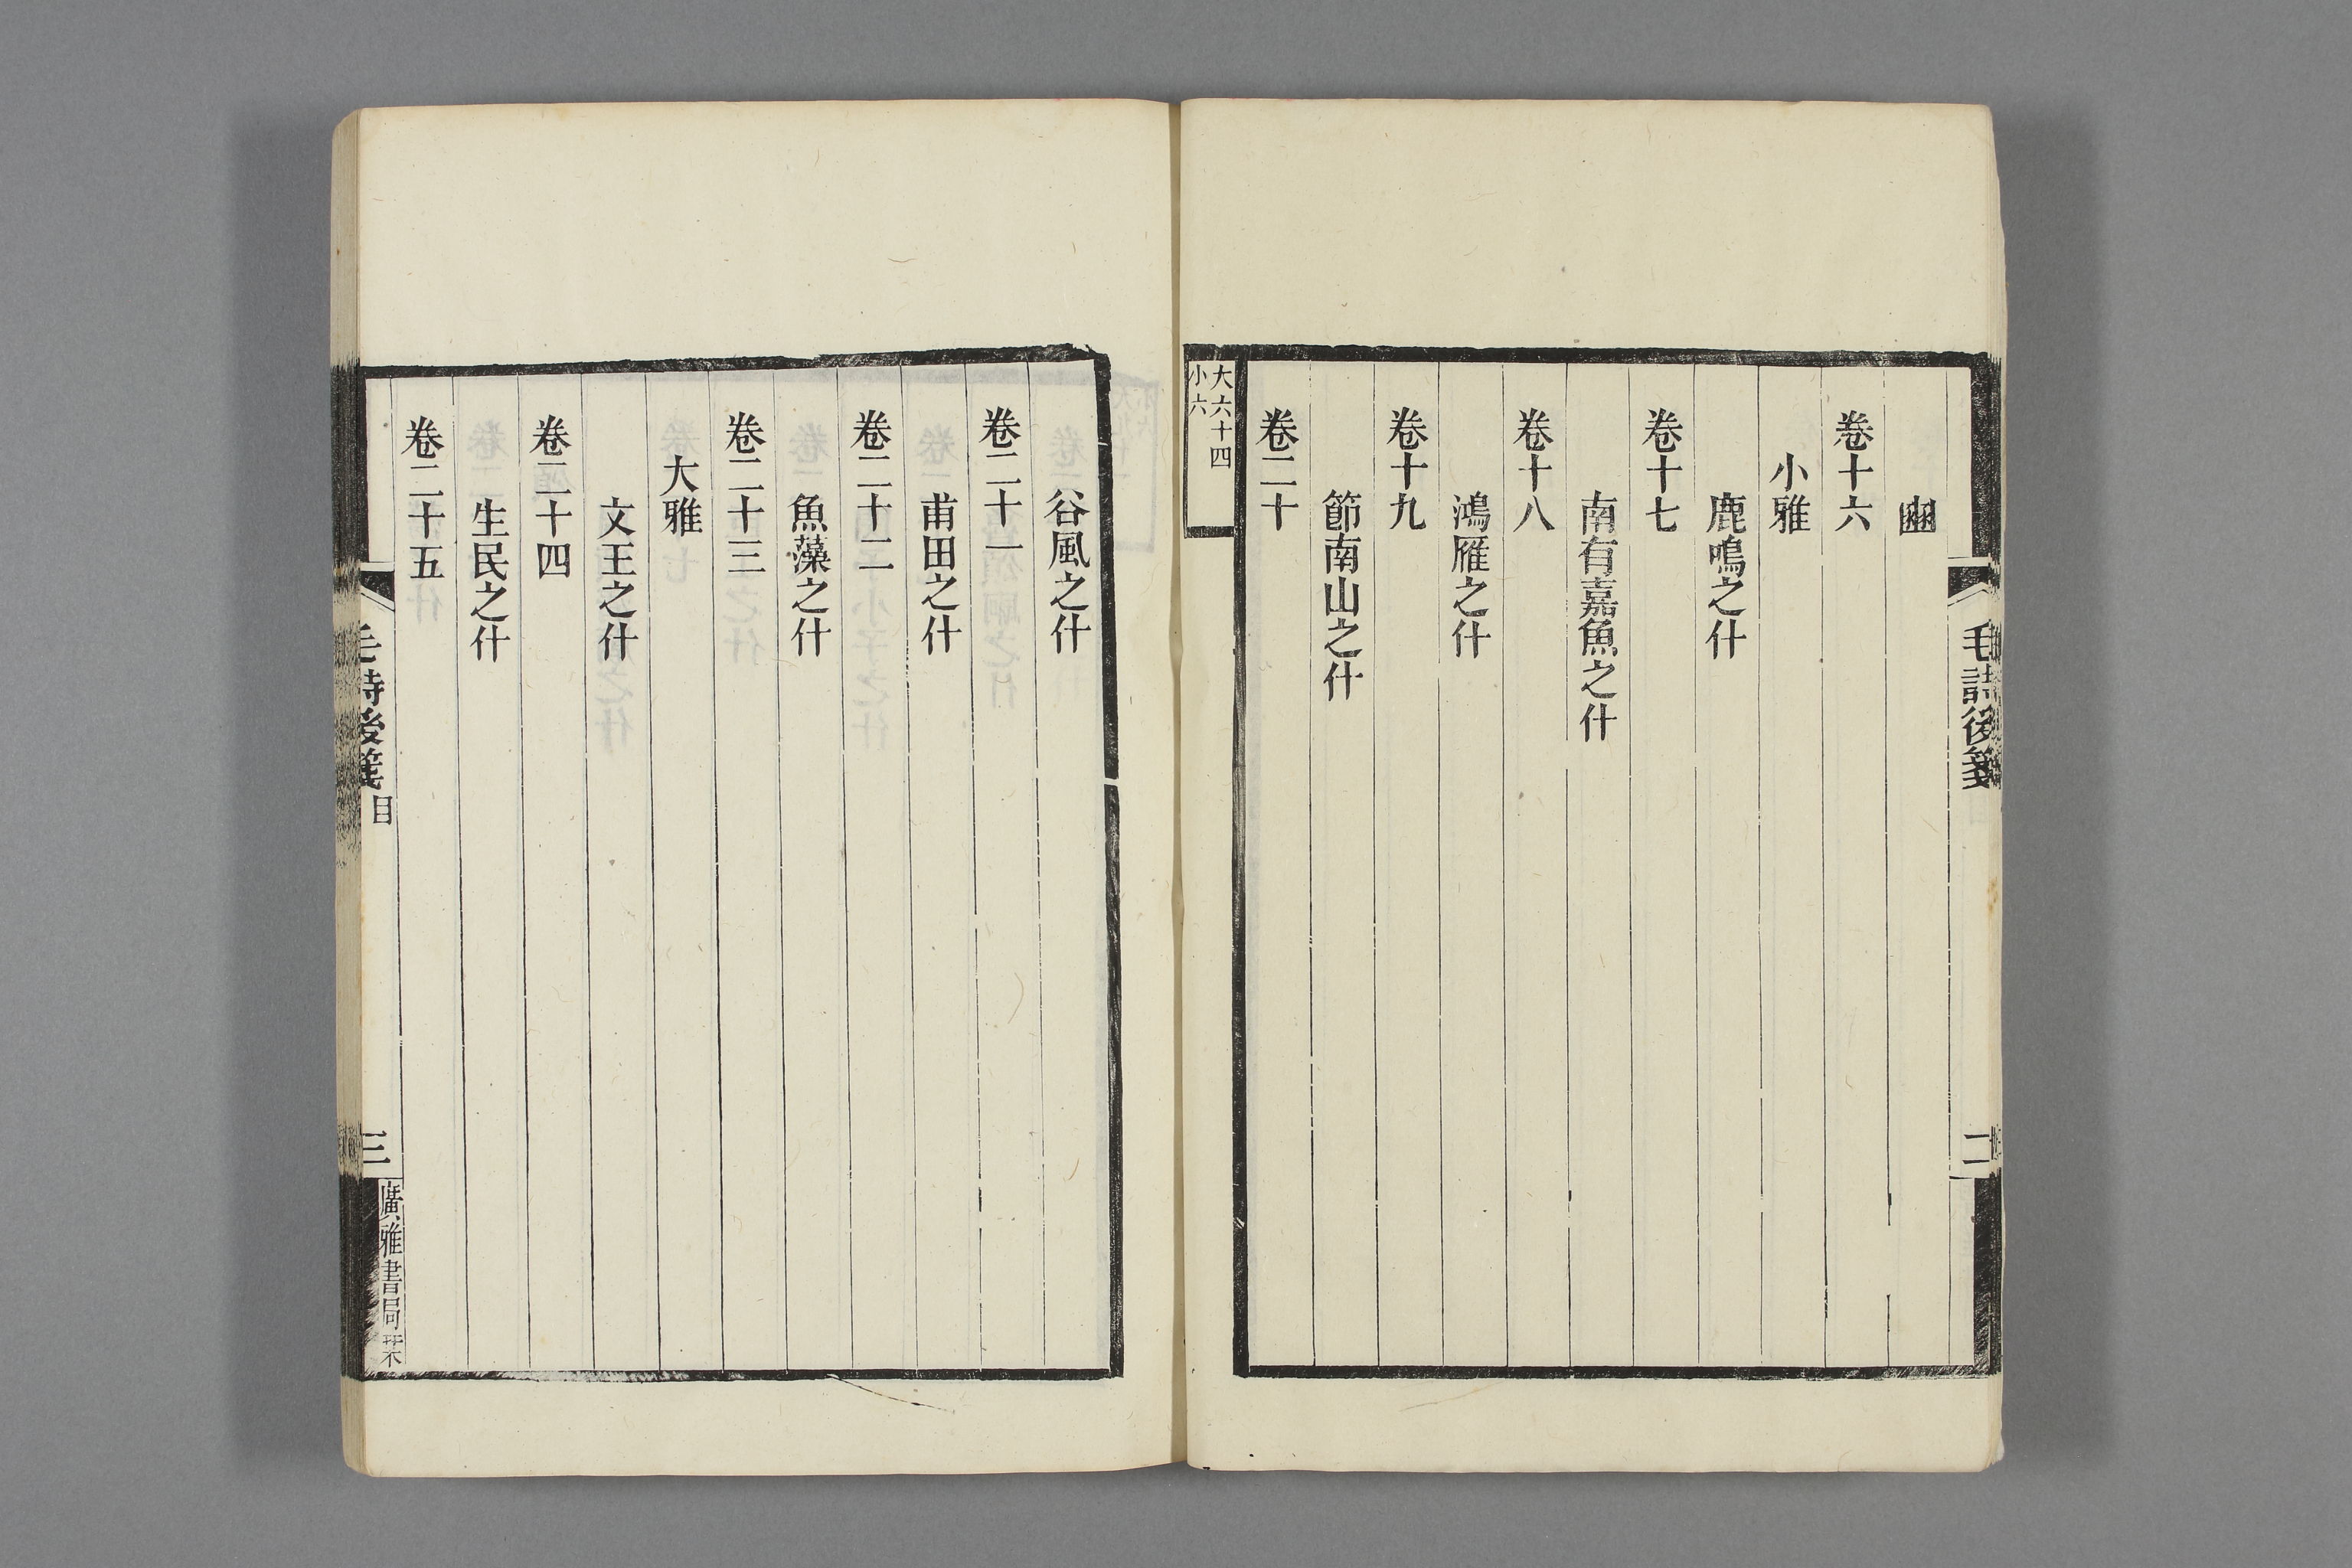 毛詩後箋
二
豳
卷十六
小雅
鹿鳴之什
卷十七
南有嘉魚之什
卷十八
鴻雁之什
卷十九
節南山之什
卷二十
大六十四
小六
谷風之什
卷二十一
甫田之什
卷二十二
魚藻之什
卷二十三
大雅
文王之什
卷二十四
生民之什
卷二十五
毛詩後箋 目
三
廣雅書局栞